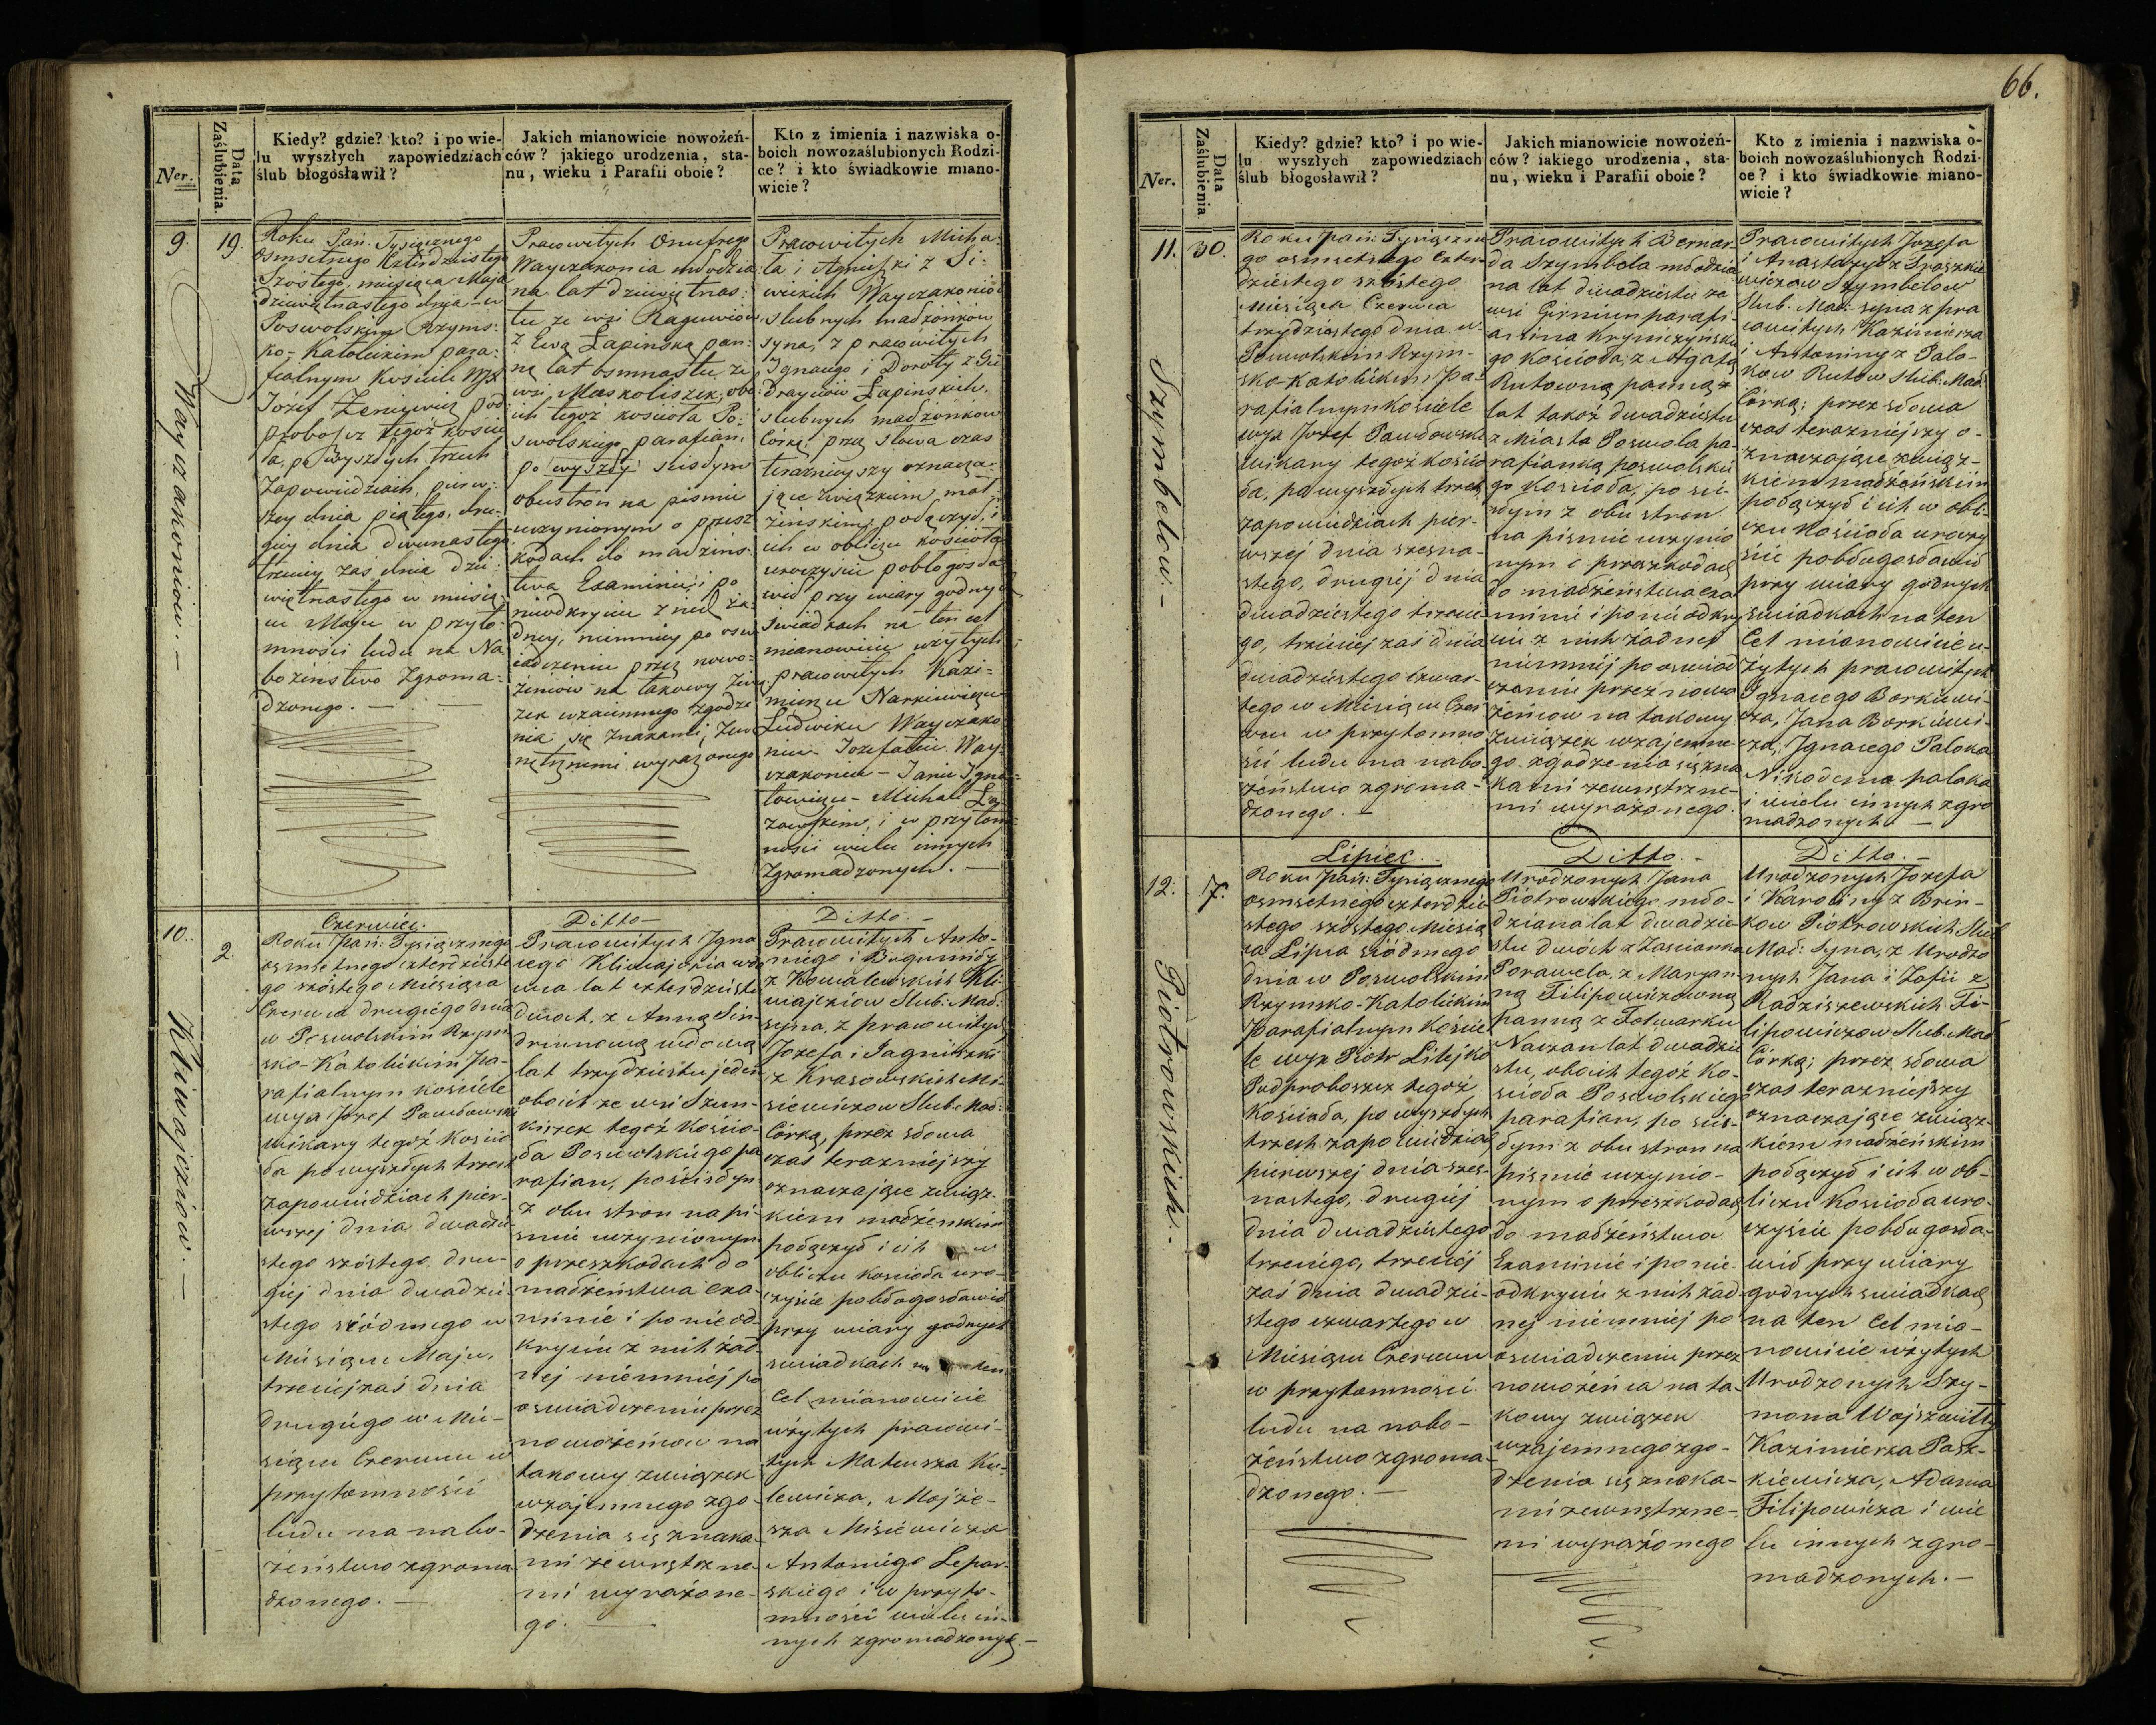 Ner.
Data Zaślubienia.
Kiedy? gdzie? kto? i po wie-
lu wyszłych zapowiedziach
ślub błogosławił?
Jakich mianowicie nowożeń-
ców? jakiego urodzenia, sta-
nu, wieku i Parafii oboie?
Kto z imienia i nazwiska o-
boich nowozaślubionych Rodzi-
ce? i kto świadkowie miano-
wicie?
9.
19.
Wayczakoniow. —
Roku Pań. Tysiącznego
Osmsetnego Czterdziestego
Szostego, miesiąca Maja
dziewiętnastego dnia - w
Poswolskim Rzyms:
ko-Katolickim para:
fialnym kościele WJX
Józef pod
proboszcz tegoż kościo
ła, po wyszłych trzech
Zapowiedziach, pierw:
szey dnia piątego, dru:
giey dnia dwunastego
trzeciey zaś dnia dzie:
więtnastego w miesią:
cu Maju w przyto:
mności ludu na Na
bożeństwo Zgroma:
dzonego. —
Pracowitych Onufrego
Wayczakonia młodzia
na lat dziewiętnas:
tu ze wsi Raguwiow
z Ewą Łapinską pan:
ną lat osmnastu ze
wsi Maskoliszek, obo:
ich tegoż kościoła Po:
swolskiego parafian,
po wyszły scisłym
obustron na pismie
uczynionym o przesz
kodach do małżeńs:
twa Examinie, i po
nieodkryciu z nich ża:
dney, niemniey po osw
iadczeniu przez nowo:
żeńców na takowy zwią
zek wzaiemnego zgodze
nia się znakami, zew
nętrznemi wyrażonego
Pracowitych Micha:
ła i Agnieszki z Si:
wickich Wayczakoniow
slubnych małżonkow
syna, z pracowitych
Ignacego i Doroty z Gie
drayciow Łapinskich,
slubnych małżonkow
Córką: przez słowa czas
teraznieyszy oznacza:
jące związkiem mał
żeńskim, połączył, i
ich w obliczu kościoła
uroczyscie pobłogosła
wił przy wiary godnych
swiadkach na ten cel
mianowicie użytych
pracowitych Kazi:
mierzu Narkiewiczu
Ludwiku Wayczako
niu - Jozefacie Way
czakoniu - Janie Igna:
towiczu - Michale
i w przytom:
nosci wielu innych
Zgromadzonych. —
10.
2.
Klimajciów. —
Czerwiec.
Roku Pań: Tysiącznego
osmsetnego czterdzieste
go szóstego Miesiąca
Czerwca drugiego dnia
w Poswolskim Rzym
sko-Katolickim Pa-
rafialnym kościele
wjx Jozef Pawłowski
wikary tegoż Kościo
ła po wyszłych trzech
zapowiedziach pier-
wszej dnia dwudzie
stego szóstego, dru-
giej dnia dwudzie
stego siódmego w
Miesiącu Maju,
trzeciej zaś dnia
drugiego w Mie-
siącu Czerwcu w
przytomności
ludu na nabo-
żeństwo zgroma
dzonego. —
Ditto —
Pracowitych Igna
cego Klimajcia wdo
wca lat czterdziestu
dwoch, z Anną Sin-
drunową wdową
lat trzydziestu jeden
oboich ze wsi Szun-
kiszek tegoż Koscio-
ła Poswolskiego pa
rafian, po ścisłym
z obu stron na pi-
smie uczynionym
o przeszkodach do
małżeństwa exa-
minie i po nieod-
kryciu z nich żad-
nej niemniej po
oswiadczeniu przez
nowożeńcow na
takowy związek
wzajemnego zgo-
dzenia się znaka-
mi zewnętrzne-
mi wyrażone-
go. —
Ditto. —
Pracowitych Anto-
niego i Bogumiły
z Kowalewskich Kli
majciow Slub: Mał:
syna, z pracowitych
Jozefa i Jagnieszki
z Krasowskich Mi-
siewiczow Slub: Mał:
Córką, przez słowa
czas terazniejszy
oznaczające związ-
kiem małżeńskim
połączył i ich w
obliczu Koscioła uro-
czyscie pobłogosławił
przy wiary godnych
swiadkach na ten
Cel mianowicie
użytych pracowi-
tych Mateusza Ku-
lewicza, Mojże-
sza Misiewicza
Antoniego Lepar-
skiego i w przyto-
mności wielu in-
nych zgromadzonych —
66.
Ner.
Data Zaślubienia
Kiedy? gdzie? kto? i po wie-
lu wyszłych zapowiedziach
ślub błogosławił?
Jakich mianowicie nowożeń-
ców? iakiego urodzenia, sta-
nu, wieku i Parafii oboie?
Kto z imienia i nazwiska o-
boich nowozaślubionych Rodzi-
ce? i kto świadkowie miano-
wicie?
11.
30.
Szymbelow. —
Roku Pań: Tysiączne
go osmsetnego czter-
dziestego szóstego
Miesiąca Czerwca
trzydziestego dnia w
Poswolskim Rzym-
sko-Katolickim Pa-
rafialnym Kosciele
wjx Jozef Pawłowski
wikary tegoż Koscio
ła, po wyszłych trzech
zapowiedziach pier-
wszej dnia szesna-
stego, drugiej dnia
dwudziestego trzecie
go, trzeciej zaś dnia
dwudziestego czwar-
tego w Miesiącu Czer
wcu w przytomno
sci ludu na nabo-
żeństwo zgroma-
dzonego. —
Pracowitych Bernar
da Szymbela młodzia
na lat dwadziestu ze
wsi Girniun parafi
anina Krynczyńskie
go Kościoła, z Agatą
Rutowną panną z
lat takoż dwadziestu
z Miasta Poswola pa-
rafianką poswolskie
go Kościoła, po sci-
słym z obu stron
na pismie uczynio
nym o przeszkodach
do małżeństwa exa
minie i po nieodkry
ciu z nich żadnej
niemniej po oswiad
czeniu przez nowo
żeńcow na takowy
związek wzajemne-
go zgodzenia się zna
kami zewnętrzne-
mi wyrażonego.
Pracowitych Jozefa
i Anastazyi z Draszkie
wiczow Szymbelow
Slub. Mał: syna z pra
cowitych Kazimierza
i Antoniny z Palo-
kow Rutow Slub: Mał:
Córką; przez słowa
czas terazniejszy o-
znaczające związ-
kiem małżeńskim
połączył i ich w obli-
czu Kościoła uroczy
scie pobłogosławił
przy wiary godnych
swiadkach na ten
Cel mianowicie u-
żytych pracowitych
Ignacego Borkiewi-
cza, Jana Borkiewi-
cza, Ignacego Paloka
Nikodema paloka
i wielu innych zgro
madzonych. —
12.
7.
Piotrowskich. —
Lipiec. —
Roku Pań: Tysiącznego
osmsetnego czterdzie
stego szóstego Miesią
ca Lipca siódmego
dnia w Poswolskim
Rzymsko-Katolickim
Parafialnym Koście
le wjx Piotr Litejko
Podproboszcz tegoż
Kościoła, po wyszłych
trzech zapowiedziach
pierwszej dnia szes-
nastego, drugiej
dnia dwudziestego
trzeciego, trzeciej
zaś dnia dwudzie-
stego czwartego w
Miesiącu Czerwcu
w przytomności
ludu na nabo-
żeństwo zgroma-
dzonego. —
Ditto. —
Urodzonych Jana
Piotrowskiego mło-
dziana lat dwadzie
stu dwóch z Zascianku
Porawela, z Maryan-
ną Filipowiczowną
panną z Folwarku
Naczan lat dwadzie
stu, oboich tegoż Ko-
scioła Poswolskiego
parafian, po scis-
łym z obu stron na
pismie uczynio-
nym o przeszkodach
do małżeństwa
Examinie i po nie
odkryciu z nich żad-
nej niemniej po
oswiadczeniu przez
nowożeńca na ta-
kowy związek
wzajemnego zgo-
dzenia się znaka-
mi zewnętrzne-
mi wyrażonego
Ditto. —
Urodzonych Jozefa
i Karoliny z Brin-
kow Piotrowskich Slub
Mał: Syna, z Urodzo
nych Jana i Zofii z
Radziszewskich Fi-
lipowiczow Slub. Mał
Córką; przez słowa
czas terazniejszy
oznaczające związ-
kiem małżeńskim
połączył i ich w ob-
liczu Kościoła uro-
czyście pobłogosła-
wił przy wiary
godnych swiadkach
na ten Cel mia-
nowicie użytych
Urodzonych Szy-
mona Wojszwiłły
Kazimierza Pasz-
kiewicza, Adama
Filipowicza i wie
lu innych zgro-
madzonych. —